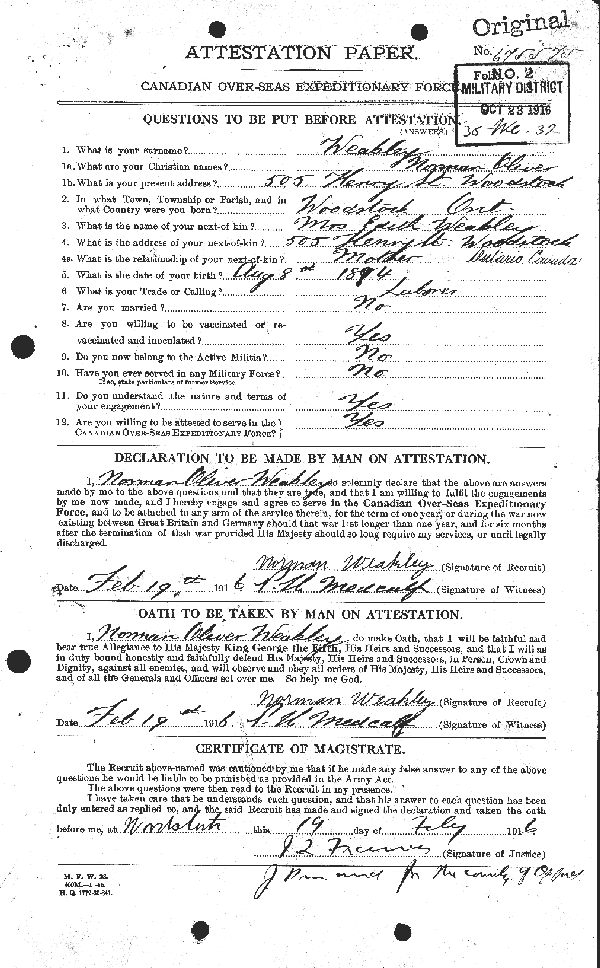 Original
ATTESTATION PAPER.
No.
Folio.
NO. 2
MILITARY DISTRICT
OCT 23 1916
CANADIAN OVER-SEAS EXPEDITIONARY FORCE
QUESTIONS TO BE PUT BEFORE ATTESTATION.
(ANSWERS)
36-We-32
1. What is your surname? Weakley
1a. What are your Christian names? Norman Oliver
1b. What is your present address? 505 Henry St Woodstock
2. In what Town, Township or Parish, and in
what Country were you born? Woodstock Ont
3. What is the name of your next-of kin? Mrs Edith Weakley
4. What is the address of your next-of-kin? 505 Henry St. Woodstock
4a. What is the relationship of your next-of-kin? Mother Ontario Canada
5. What is the date of your birth? Aug 8th 1894
6. What is your Trade or Calling? Laborer
7. Are you married? No
8. Are you willing to be vaccinated or re-
vaccinated and inoculated? Yes
9. Do you now belong to the Active Militia? No
10. Have you ever served in any Military Force? No
If so, state particulars of former Service
11. Do you understand the nature and terms of
your engagement? Yes
12. Are you willing to be attested to serve in the Yes
CANADIAN OVER-SEAS EXPEDITIONARY FORCE?
DECLARATION TO BE MADE BY MAN ON ATTESTATION.
I, Norman Oliver Weakley do solemnly declare that the above are answers
made by me to the above questions and that they are true, and that I am willing to fulfil the engagements
by me now made, and I hereby engage and agree to serve in the Canadian Over-Seas Expeditionary
Force, and to be attached to any arm of the service therein, for the term of one year, or during the war now
existing between Great Britain and Germany should that war last longer than one year, and for six months
after the termination of that war provided His Majesty should so long require my services, or until legally
discharged.
Norman Weakley (Signature of Recruit)
Date Feb 19th 1916 Medcalf (Signature of Witness)
OATH TO BE TAKEN BY MAN ON ATTESTATION.
I, Norman Oliver Weakley, do make Oath, that I will be faithful and
bear true Allegiance to His Majesty King George the Fifth, His Heirs and Successors, and that I will as
in duty bound honestly and faithfully defend His Majesty, His Heirs and Successors, in Person, Crown and
Dignity, against all enemies, and will observe and obey all orders of His Majesty, His Heirs and Successors,
and of all the Generals and Officers set over me. So help me God.
Norman Weakley (Signature of Recruit)
Date Feb 19th 1916 Medcalf (Signature of Witness)
CERTIFICATE OF MAGISTRATE.
The Recruit above-named was cautioned by me that if he made any false answer to any of the above
questions he would be liable to be punished as provided in the Army Act.
The above questions were then read to the Recruit in my presence.
I have taken care that he understands each question, and that his answer to each question has been
duly entered as replied to, and the said Recruit has made and signed the declaration and taken the oath
before me, at Woodstock this 19 day of Feby 1916
(Signature of Justice)
M. F. W. 23.
for the county of Oxford